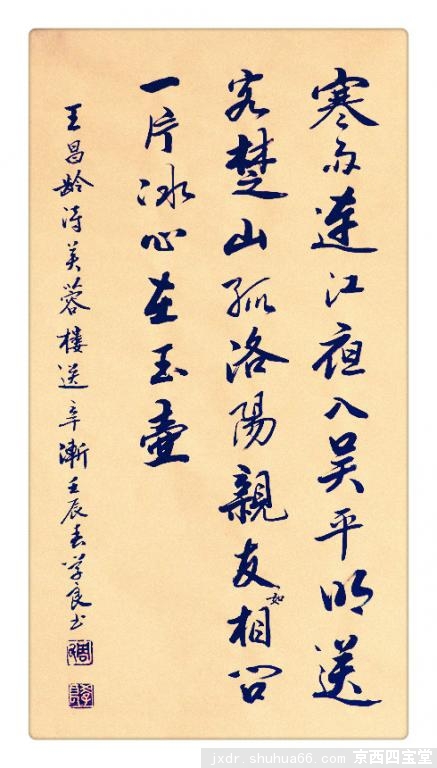 寒雨連江夜入吴平明送
客楚山孤洛陽親友如相问
一片冰心在玉壺
王昌齡诗芙蓉樓送辛漸壬辰春学良书
jxdr.shuhua66.com 京西四宝堂